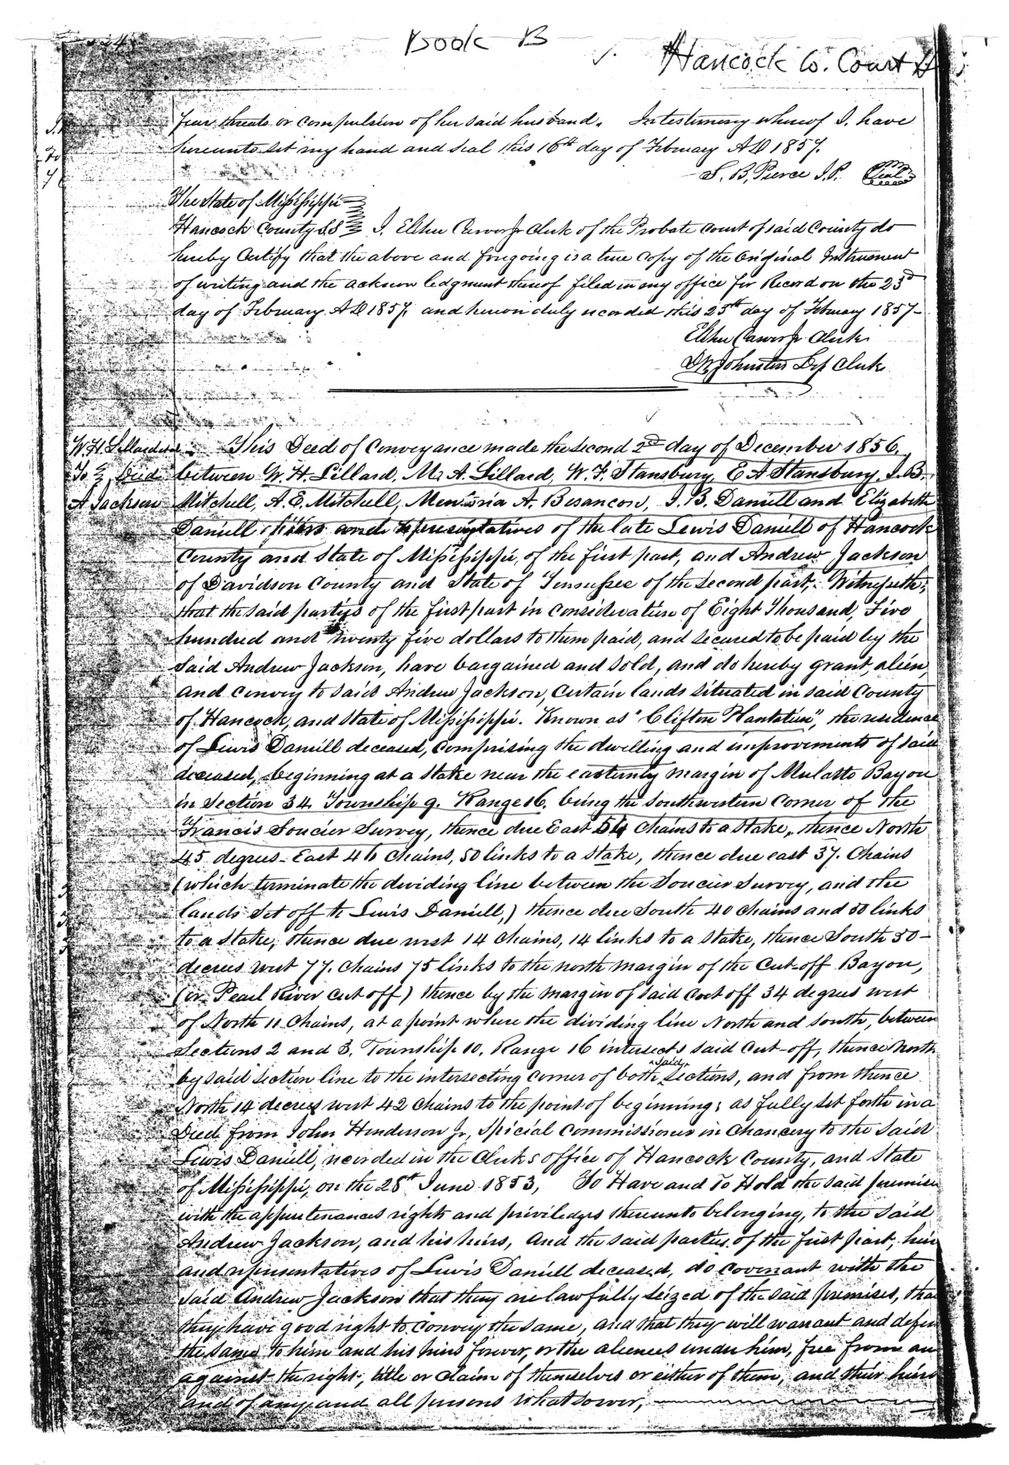 Book B
Hancock Co. Court H
fear threats or compulsion of her said husband. In testimony whereof I have
hereunto set my hand and seal this 16th day of February AD 1857.
S. B. Pierce J.P. Seal
The State of Mississippi
Hancock County SS I, Elihu Carver Jr Clerk of the Probate Court of said County do
hereby Certify that the above and foregoing is a true Copy of the Original Instrument
of writing and the acknowledgment thereof filed in my office for Record on the 23d
day of February AD 1857, and hereon duly recorded this 25th day of February 1857
Elihu Carver Jr Clerk
Johnston Dep Clerk
W. H. Lillard et al
To Deed
A Jackson
This Deed of Conveyance made the second 2nd day of December 1856,
between W. H. Lillard, M. A. Lillard, W. F. Stansbury, E A Stansbury, J. B.
Mitchell, A. E. Mitchell, A. Besancon, J. B. Daniell and Elizabeth
Daniell heirs and representatives of the late Lewis Daniell of Hancock
County and State of Mississippi, of the first part, and Andrew Jackson
of Davidson County and State of Tennessee of the second part, Witnesseth;
that the said partys of the first part in consideration of Eight Thousand, Five
hundred and Twenty five dollars to them paid, and secured to be paid by the
said Andrew Jackson, have bargained and sold, and do hereby grant, alien
and convey to said Andrew Jackson, certain lands situated in said County
of Hancock, and State of Mississippi. Known as "Clifton Plantation", the residence
of Lewis Daniell deceased, comprising the dwelling and improvements of said
deceased, beginning at a stake near the easternly margin of Mulatto Bayou
in Section 34. Township 9. Range 16, being the southwestern corner of the
Francis Soucier Survey, thence due East 54 chains to a stake, thence North
45 degrees East 46 chains, 50 links to a stake, thence due east 37. Chains
(which terminate the dividing line between the Soucier Survey, and the
lands set off to Lewis Daniell,) thence due South 40 chains and 50 links
to a stake, thence due west 14 chains, 14 links to a stake, thence South 50
decrees west 77. chains 75 links to the north margin of the Cut-off Bayou,
(or Pearl River cut off) thence by the margin of said Cut off 34 degrees west
of North 11 chains, at a point where the dividing line North and South, between
Sections 2 and 3, Township 10, Range 16 intersects said cut-off, thence North
by said section line to the intersecting corner of both said sections, and from thence
North 14 decrees west 42 chains to the point of beginning; as fully set forth in a
Deed from John Henderson Jr, special commissioner in Chancery to the said
Lewis Daniell, recorded in the Clerks office of Hancock County, and State
of Mississippi, on the 28th June 1853, To Have and To Hold the said premises
with the appurtenances rights and priviledges thereunto belonging, to the said
Andrew Jackson, and his heirs, and the said parties of the first part, heirs
and representatives of Lewis Daniell deceased, do covenant with the
said Andrew Jackson that they are lawfully seized of the said premises, that
they have good right to convey the same, and that they will warrant and defend
the same to him and his heirs forever, or the alienees under him, free from and
against the right, title or claim of themselves or either of them, and their heirs
and of any and all persons whatsoever,